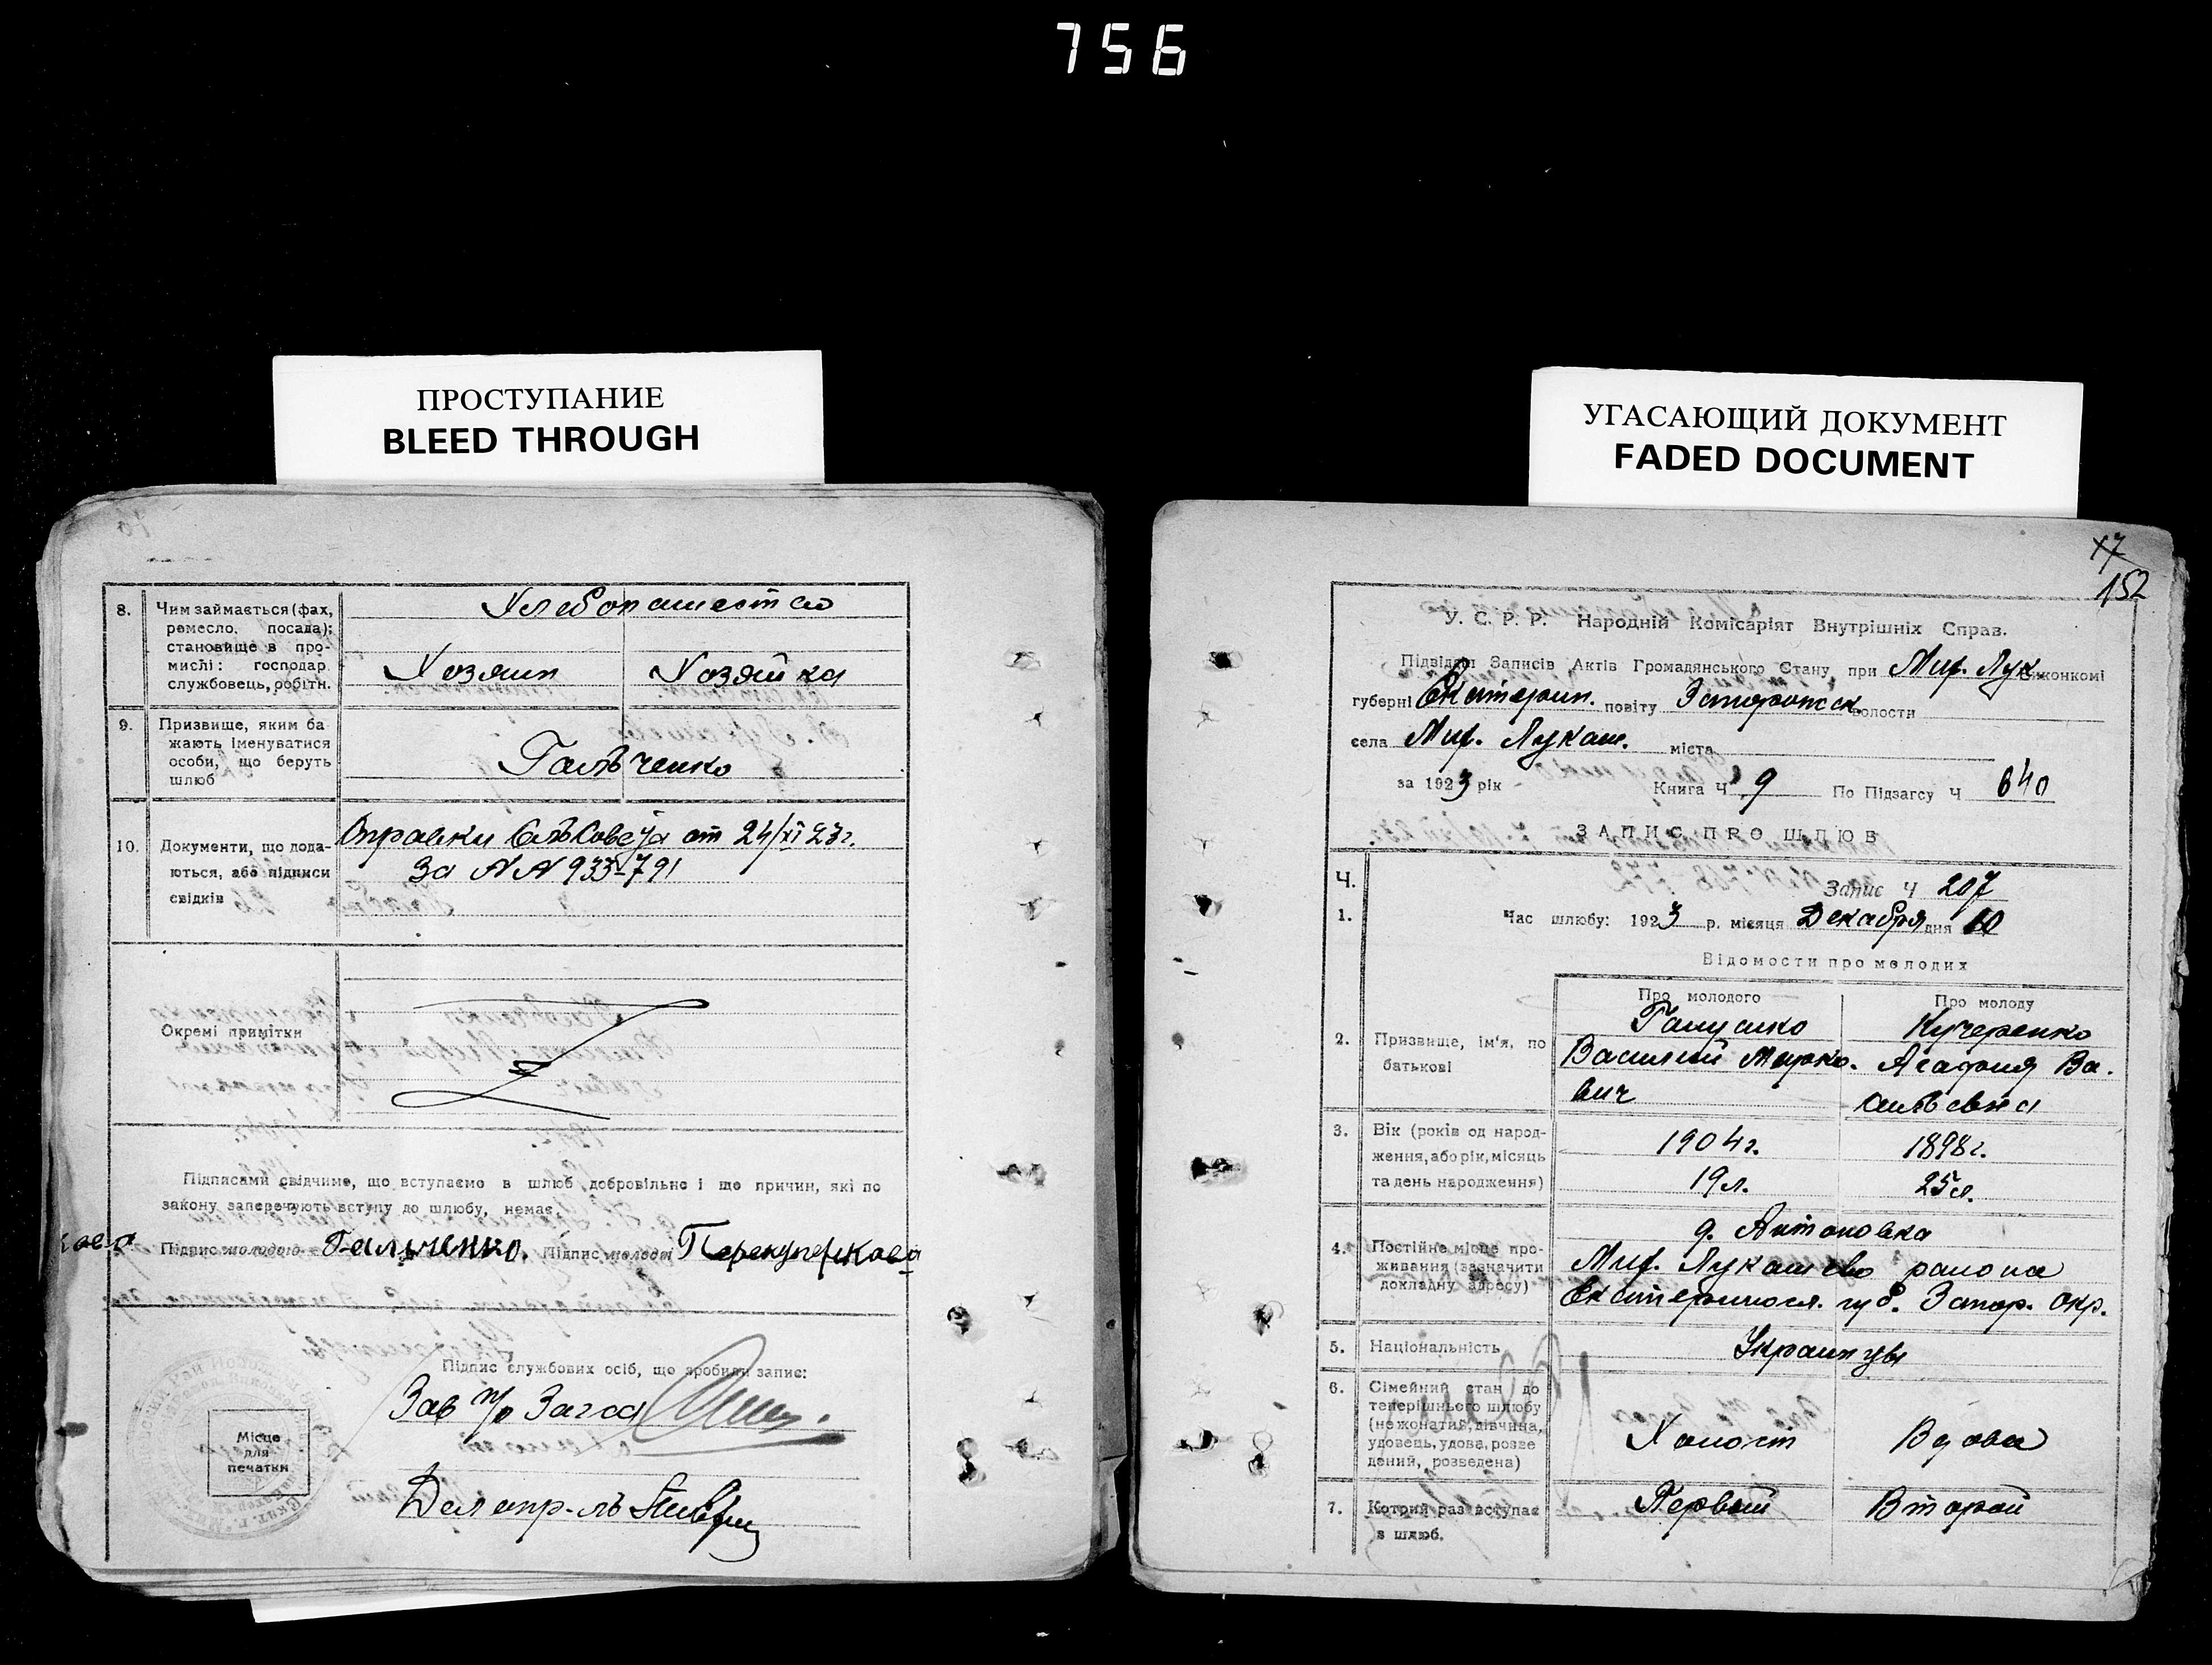 756
ПРОСТУПАНИЕ
BLEED THROUGH
8. Чим займається (фах,
ремесло, посада);
становище в про-
мислі: господар
службовець, робітн.
Хлебопашество
Хозяин Хозяйка
9. Призвище, яким ба-
жають іменуватися
особи, що беруть
шлюб
Гальченко
10. Документи, що дода-
ються, або підписи
свідків
Справки СельСовета от 24/XI 23г.
За № № 933-791
Окремі примітки
Підписами свідчимо, що вступаємо в шлюб добровільно і що причин, які по
закону заперечують вступу до шлюбу, немає.
Підпис молодого Гальченко. Підпис молодої
Підпис службових осіб, що зробили запис:
Зав п/о Загса
Місце
для
печатки
Делопр-ль
УГАСАЮЩИЙ ДОКУМЕНТ
FADED DOCUMENT
17
152
У. С. Р. Р. Народній Комісаріят Внутрішніх Справ.
Підвідділ Записів Актів Громадянського Стану при Мих. Лук. Виконкомі
губерні Екатерин. повіту Запорожск волости
села Мих. Лукаш. міста
за 1923 рік Книга Ч 9 По Підзагсу Ч 640
ЗАПИС ПРО ШЛЮБ
Ч. Запис Ч 207
1. Час шлюбу: 1923 р. місяця Декабря дня 10
Відомости про молодих
Про молодого Про молоду
2. Призвище, ім'я, по
батькові
Кучеренко
Василий Марко- Агафия Ва-
вич сильевна
3. Вік (років од народ-
ження, або рік, місяць
та день народження)
1904г. 1898г.
19л. 25л.
4. Постійне місце про-
живання (зазначити
докладну адресу)
д. Антоновка
Мих. Лукашево района
Екатериносл. губ. Запор. окр.
5. Національність Украинцы
6. Сімейний стан до
теперішнього шлюбу
(не жонатий, дівчина,
удовець, удова, розве
дений, розведена)
Холост Вдова
7. Котрий раз вступає
в шлюб.
Первый Второй